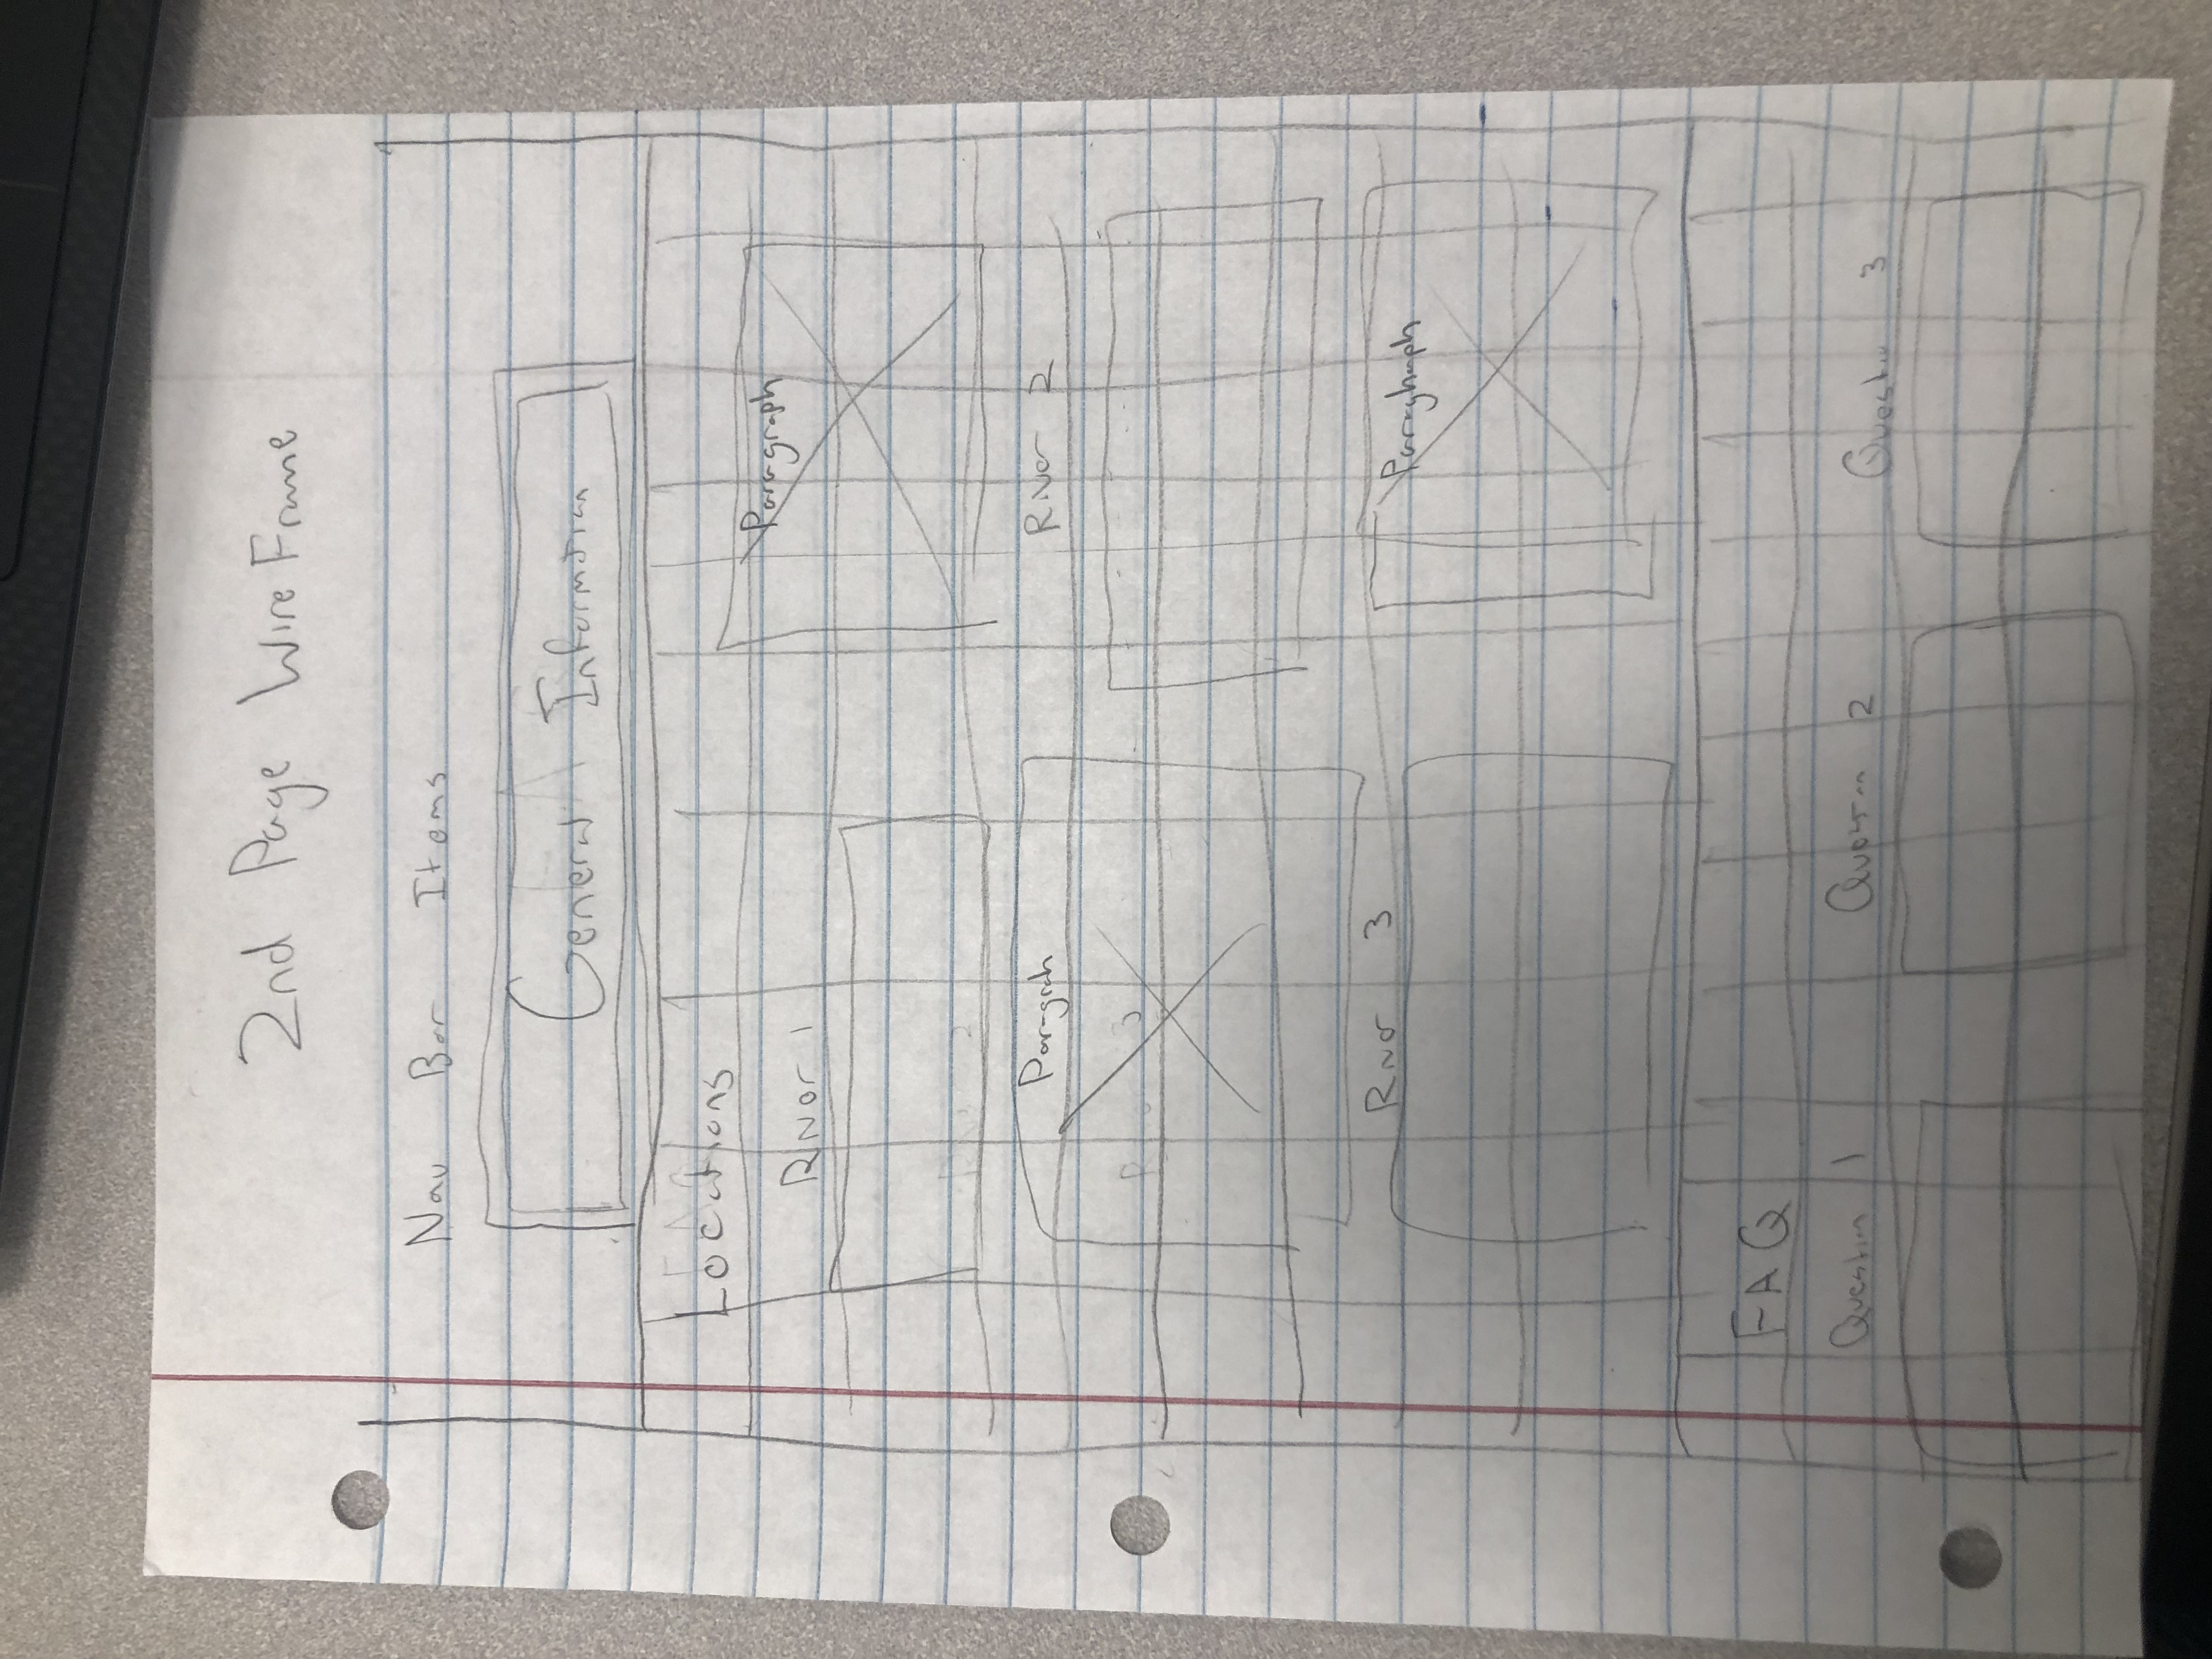 2nd Page Wire Frame
Nav Bar Items
General Information
Locations
River 1
Paragraph
Paragrah
River 2
River 3
Paraghraph
FAQ
Question 1
Question 2
Question 3